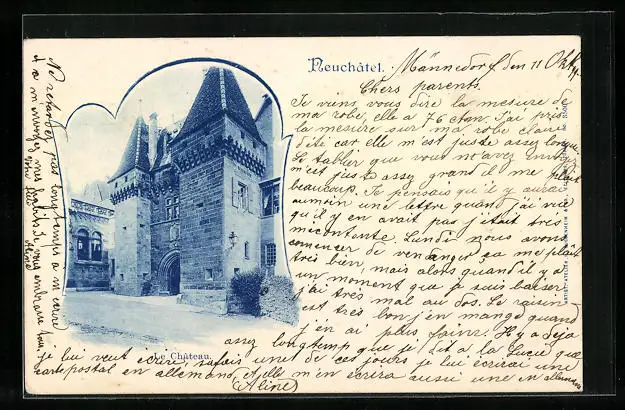 Neuchâtel. Männedorf den 11 Okt.
Chers parents.
Je viens vous dire la mesure de
ma robe, elle a 76 ctm. J'ai pris
la mesure sur ma robe claire
d'été car elle m'est juste assez longue
Le tablier que vous m'avez envoyé
m'est juste assez grand il me plaît
beaucoup. Je pensais qu'il y aurai
aumoin une lettre quand j'ai vue
qu'il y en avait pas j'était très
mecontente. Lundi nous avons
comencer de vendanger ça me plaît
très bien, mais alors quand il y a
un moment que je suis baisser
j'ai très mal au dos. Le raisin
est très bon j'en mange quand
j'en ai plus faim. Il y a déja
assez longtemp que je dit a la Lucie que
je lui veut écrire, un de ces jours je lui écrirai une
carte postal en allemand, et elle m'en écrira aussi une en allemand
(Aline)
Ne retardez pas longtemps a m'ecrire
et a m'envoyer mes habits Je vous embrasse tous
votre fille
Aline
Le Château.